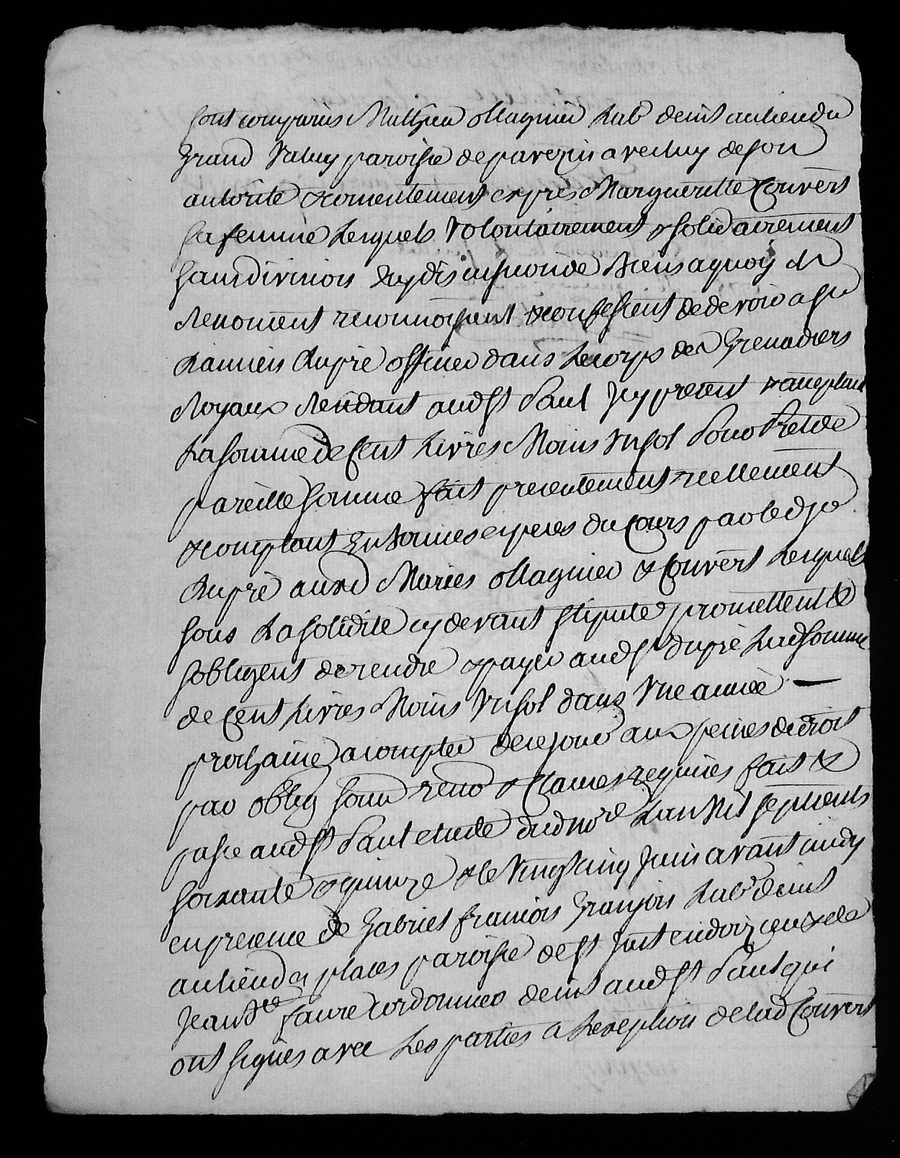 sont comparus Mathieu ollagnier Lab^r demt au lieu du
Grand Valuy paroisse de pavezin avec luy de son
autorité & consentement exprès Margueritte Couvert
sa femme Lesquels volontairement & solidairement
sans division ny discussion de biens a quoy ils
renoncent reconnoissent & confessent de devoir a s^r
Damien dupré officier dans Le corps des Grenadiers
Royaux Résidant aud St Paul Icy présent & acceptant
La somme de Cent Livres Moins un sol Pour Prêt de
pareille somme fait présentement réellement
& comptant En bonnes espèces du Cours par led s^r
dupré auxd Mariés ollagnier & Couvert Lesquels
sous La solidité cy devant stipulée promettent &
sobligent de rendre & payer aud s^r dupré Lad somme
de Cent Livres Moins un sol dans Une année —
prochaine a compter de ce jour aux peines de droit
par oblig soum renon & Clauses requises fait &
passé aud St Paul etude dud no^re L'an Mil sept cents
soixante & quinze & le Vingt cinq Juin avant midy
en presence de Gabriel françois Granjon Lab^r demt
au lieu des places paroisse de St Just en doizieux & de
Jean B^te faure Cordonnier demt aud St Paul qui
ont signés avec Les parties a Lexeption de lad Couvert